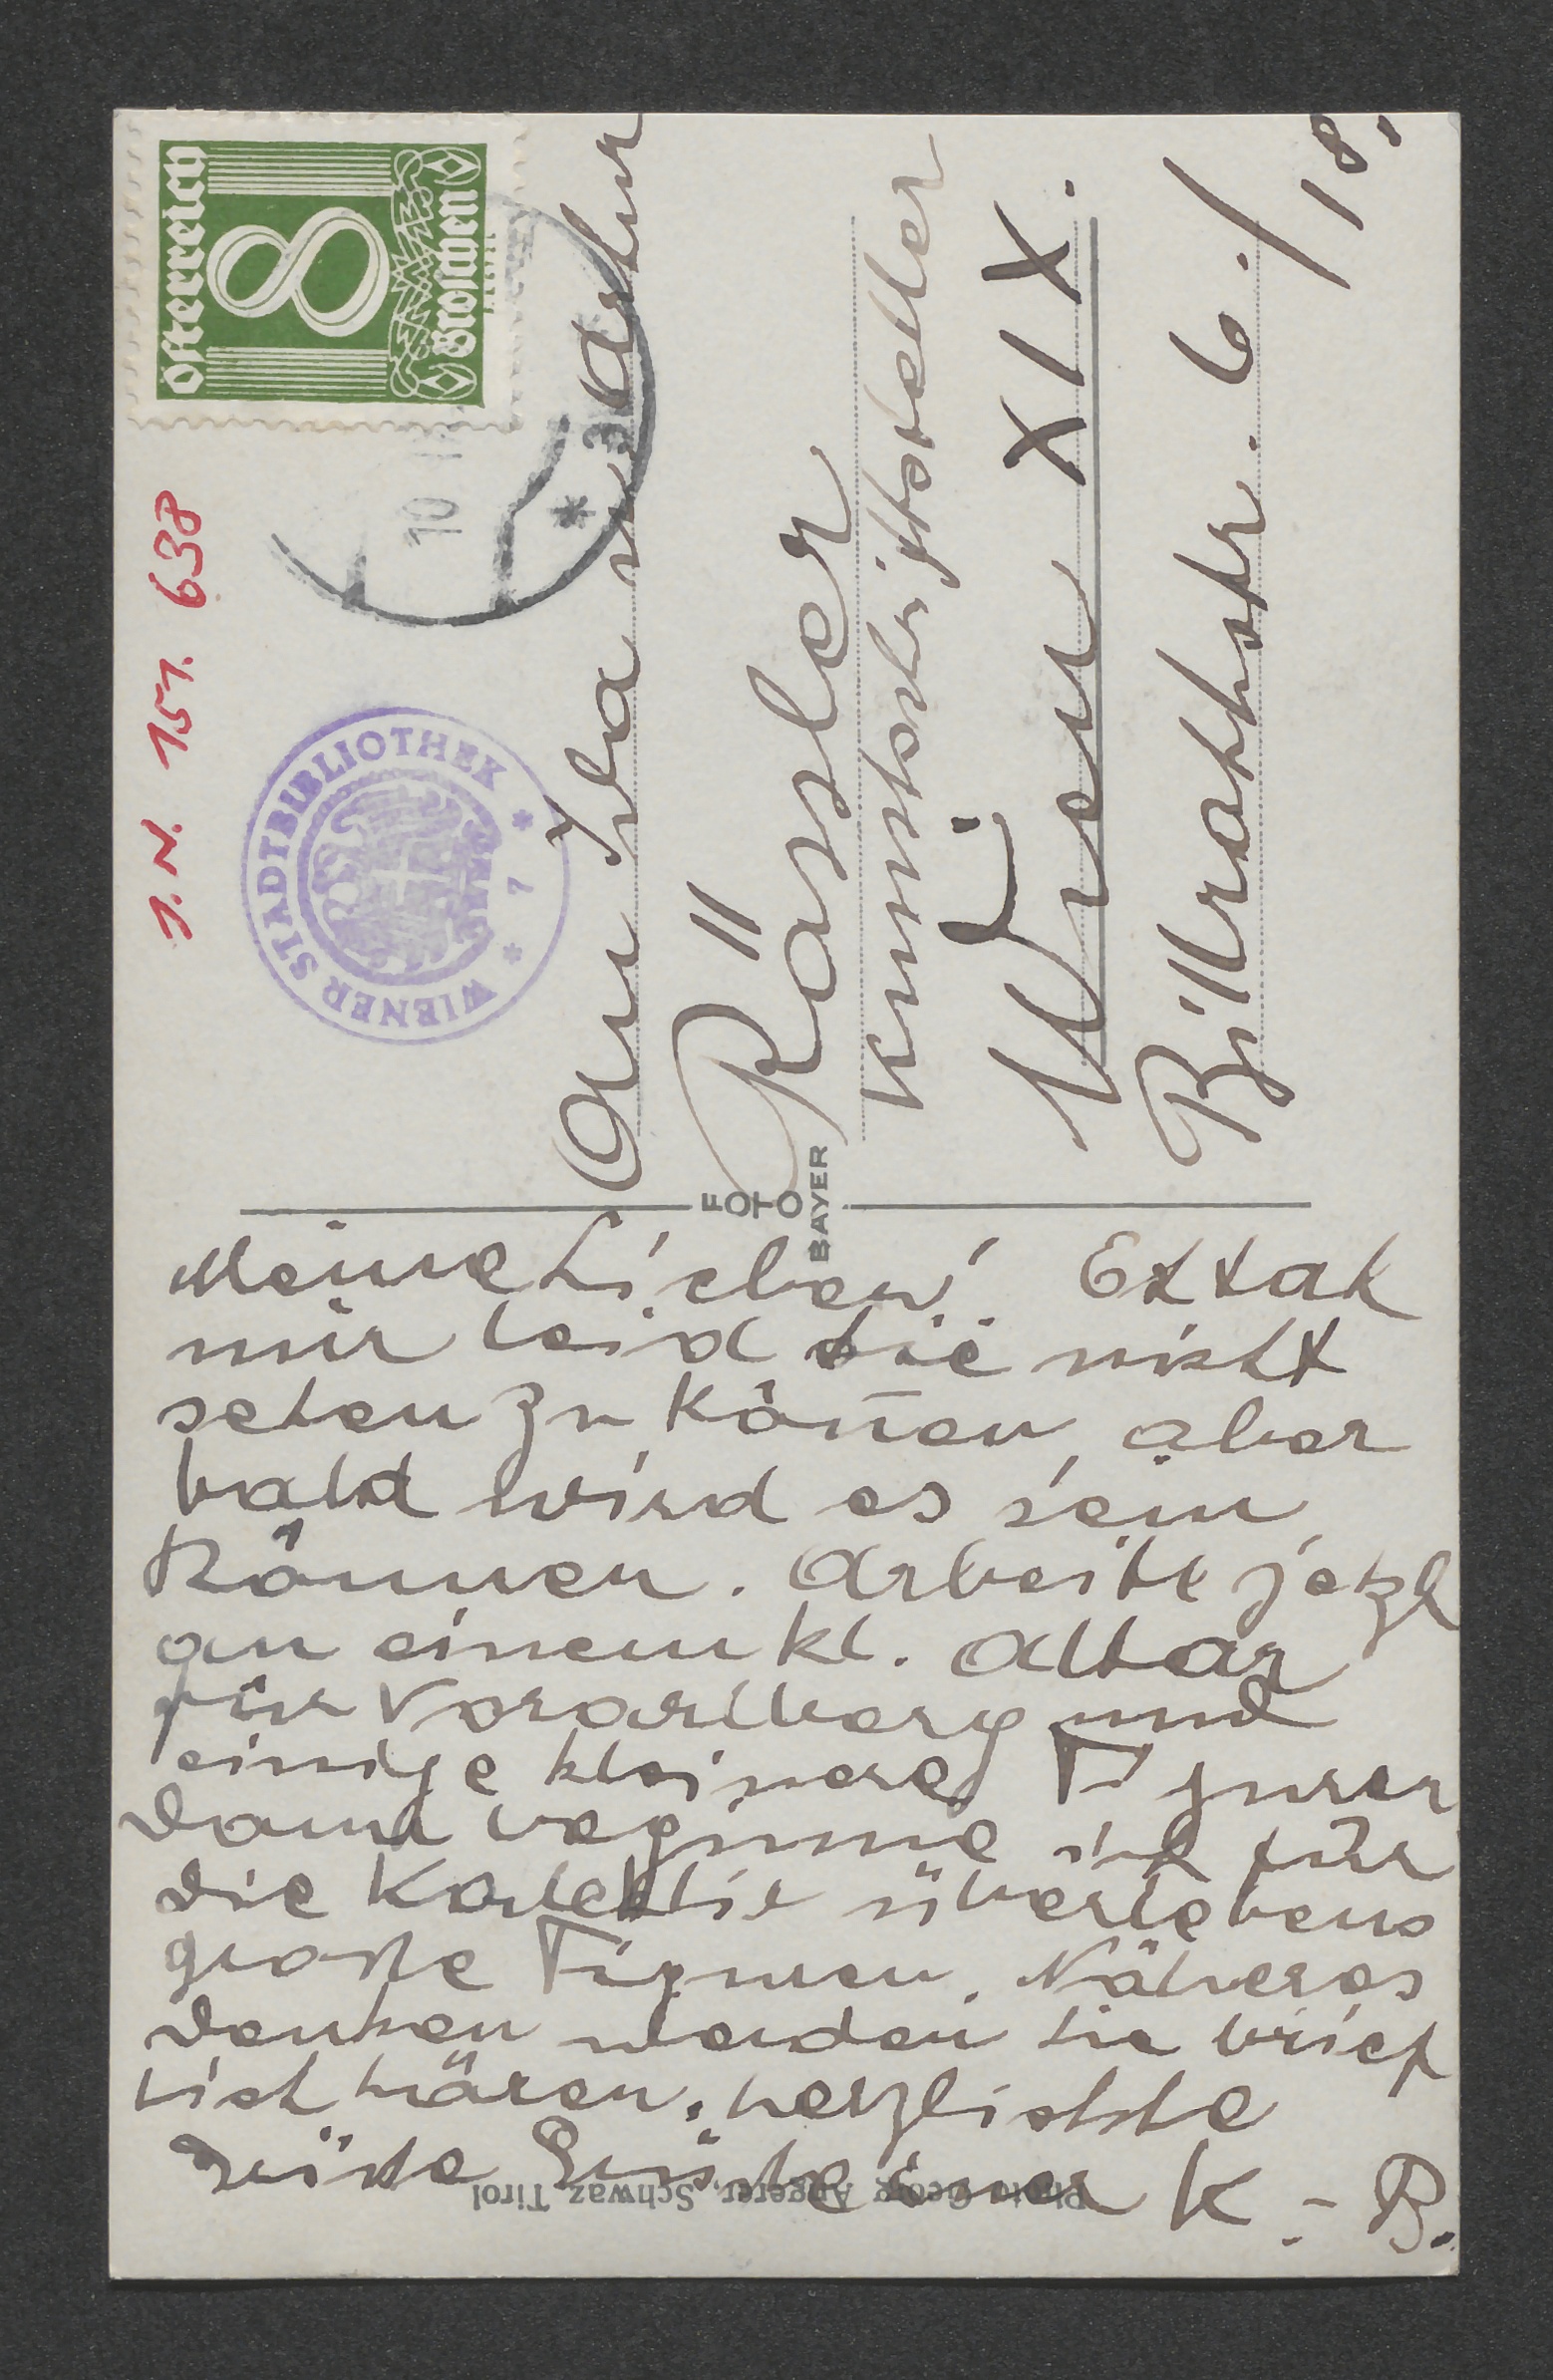 Österreich
8
Groschen
10
J.N. 151.638
WIENER STADTBIBLIOTHEK
* 7 *
An Herrn Arthur
Rössler
Kunstschriftsteller
Wien XIX.
Billrothstr. 6./18.
FOTO
BAYER
Meine Lieben! Es tat
mir leid Sie nicht
sehen zu köñen, aber
bald wird es sein
können. Arbeite jetzt
an einem kl. Altar
für Vorarlberg und
einige kleinere Figuren
dann beginne ich für
die überlebens
große Figuren. Näheres
werden Sie brief
lich hören. herzlichste
Grüße K.-B.
Photo Georg Angerer, Schwaz, Tirol